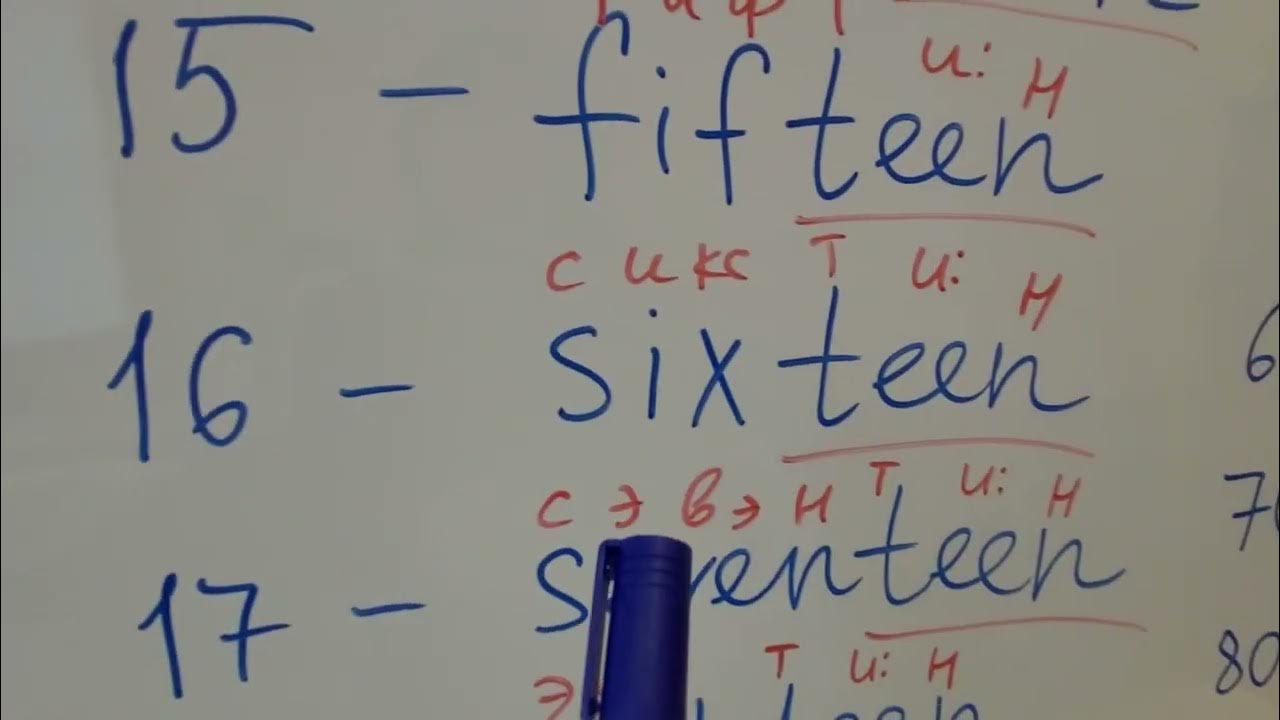 и: н
15 - fifteen
с и кс т и: н
16 - sixteen
6
с э в э н т и: н
7
17 - seventeen
т и: н
80
э